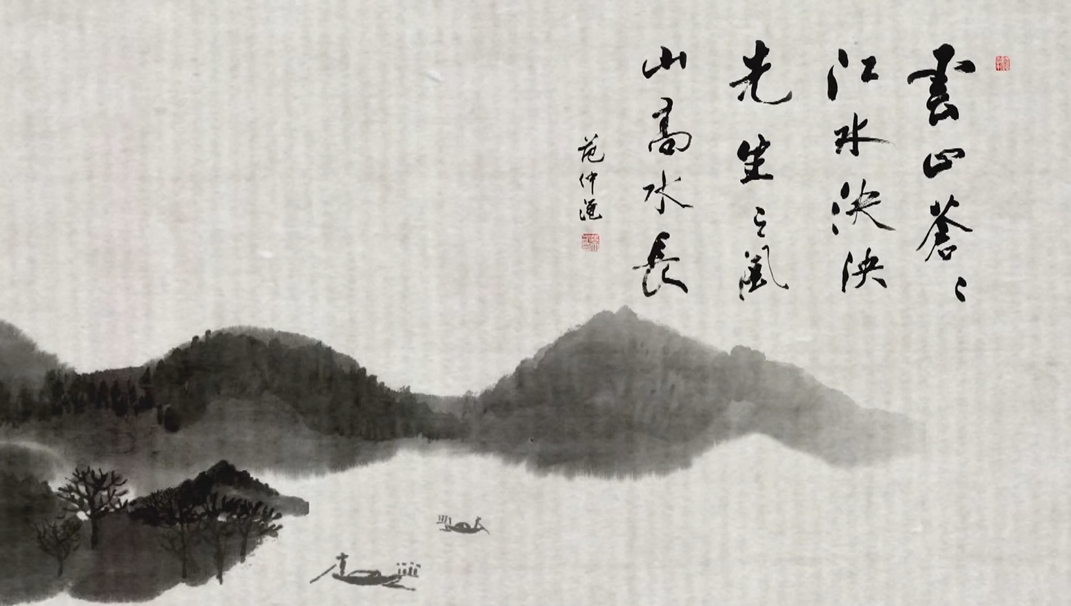 雲山蒼〻
江水泱泱
先生〻風
山高水長
范仲淹